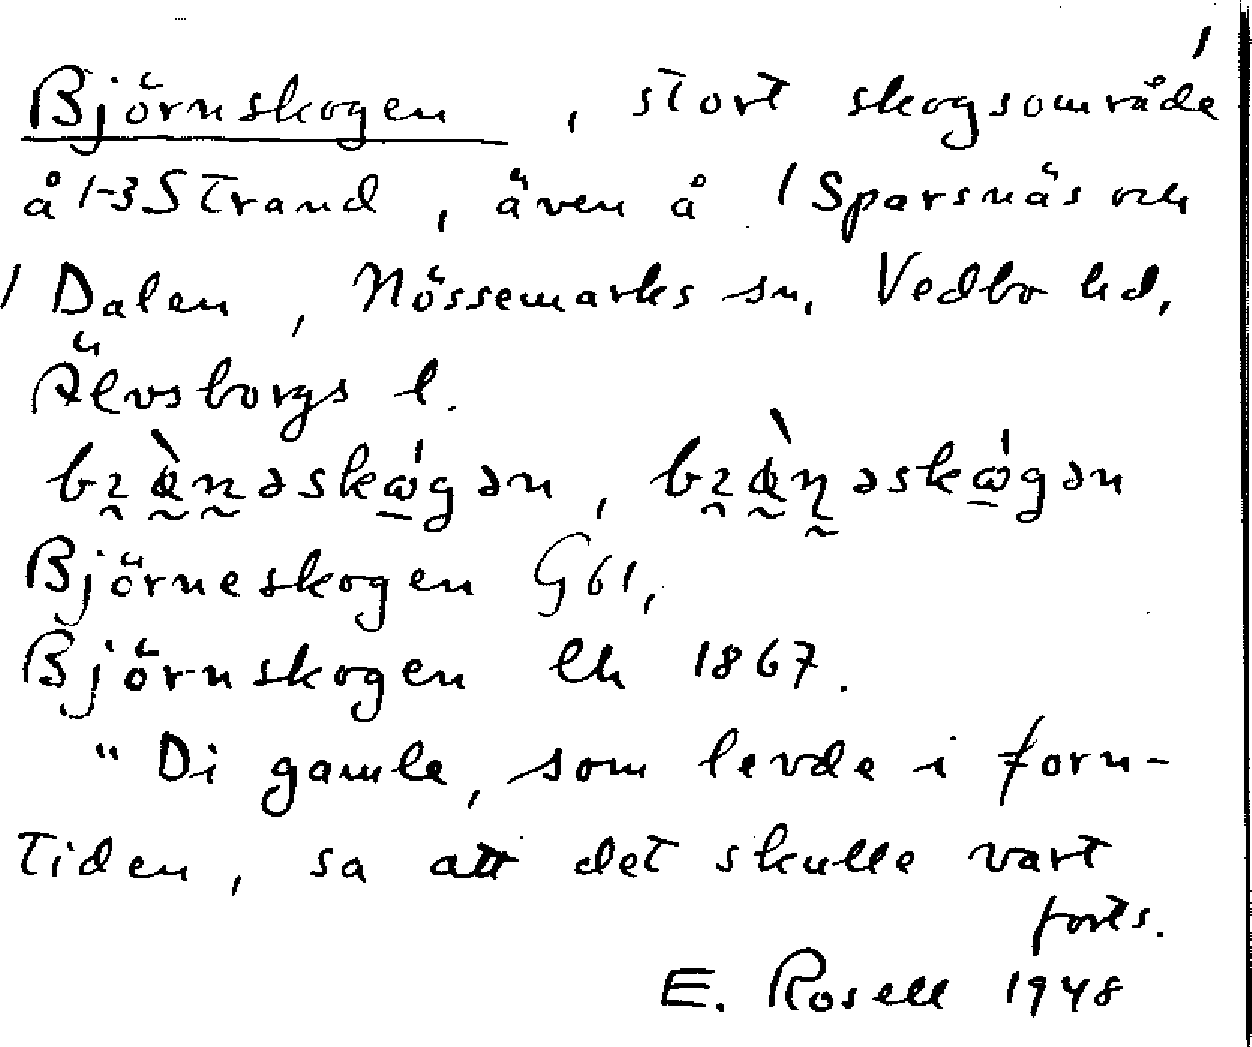 1
Björnskogen, stort skogsområde
å 1-3 Strand, även å 1 Sparsnäs och
1 Dalen, Nössemarks sn, Vedbo hd,
Älvsborgs l.
Björneskogen G61,
Björnskogen Ek 1867.
"Di gamle, som levde i forn-
tiden, sa att det skulle vart
forts.
E. Rosell 1948